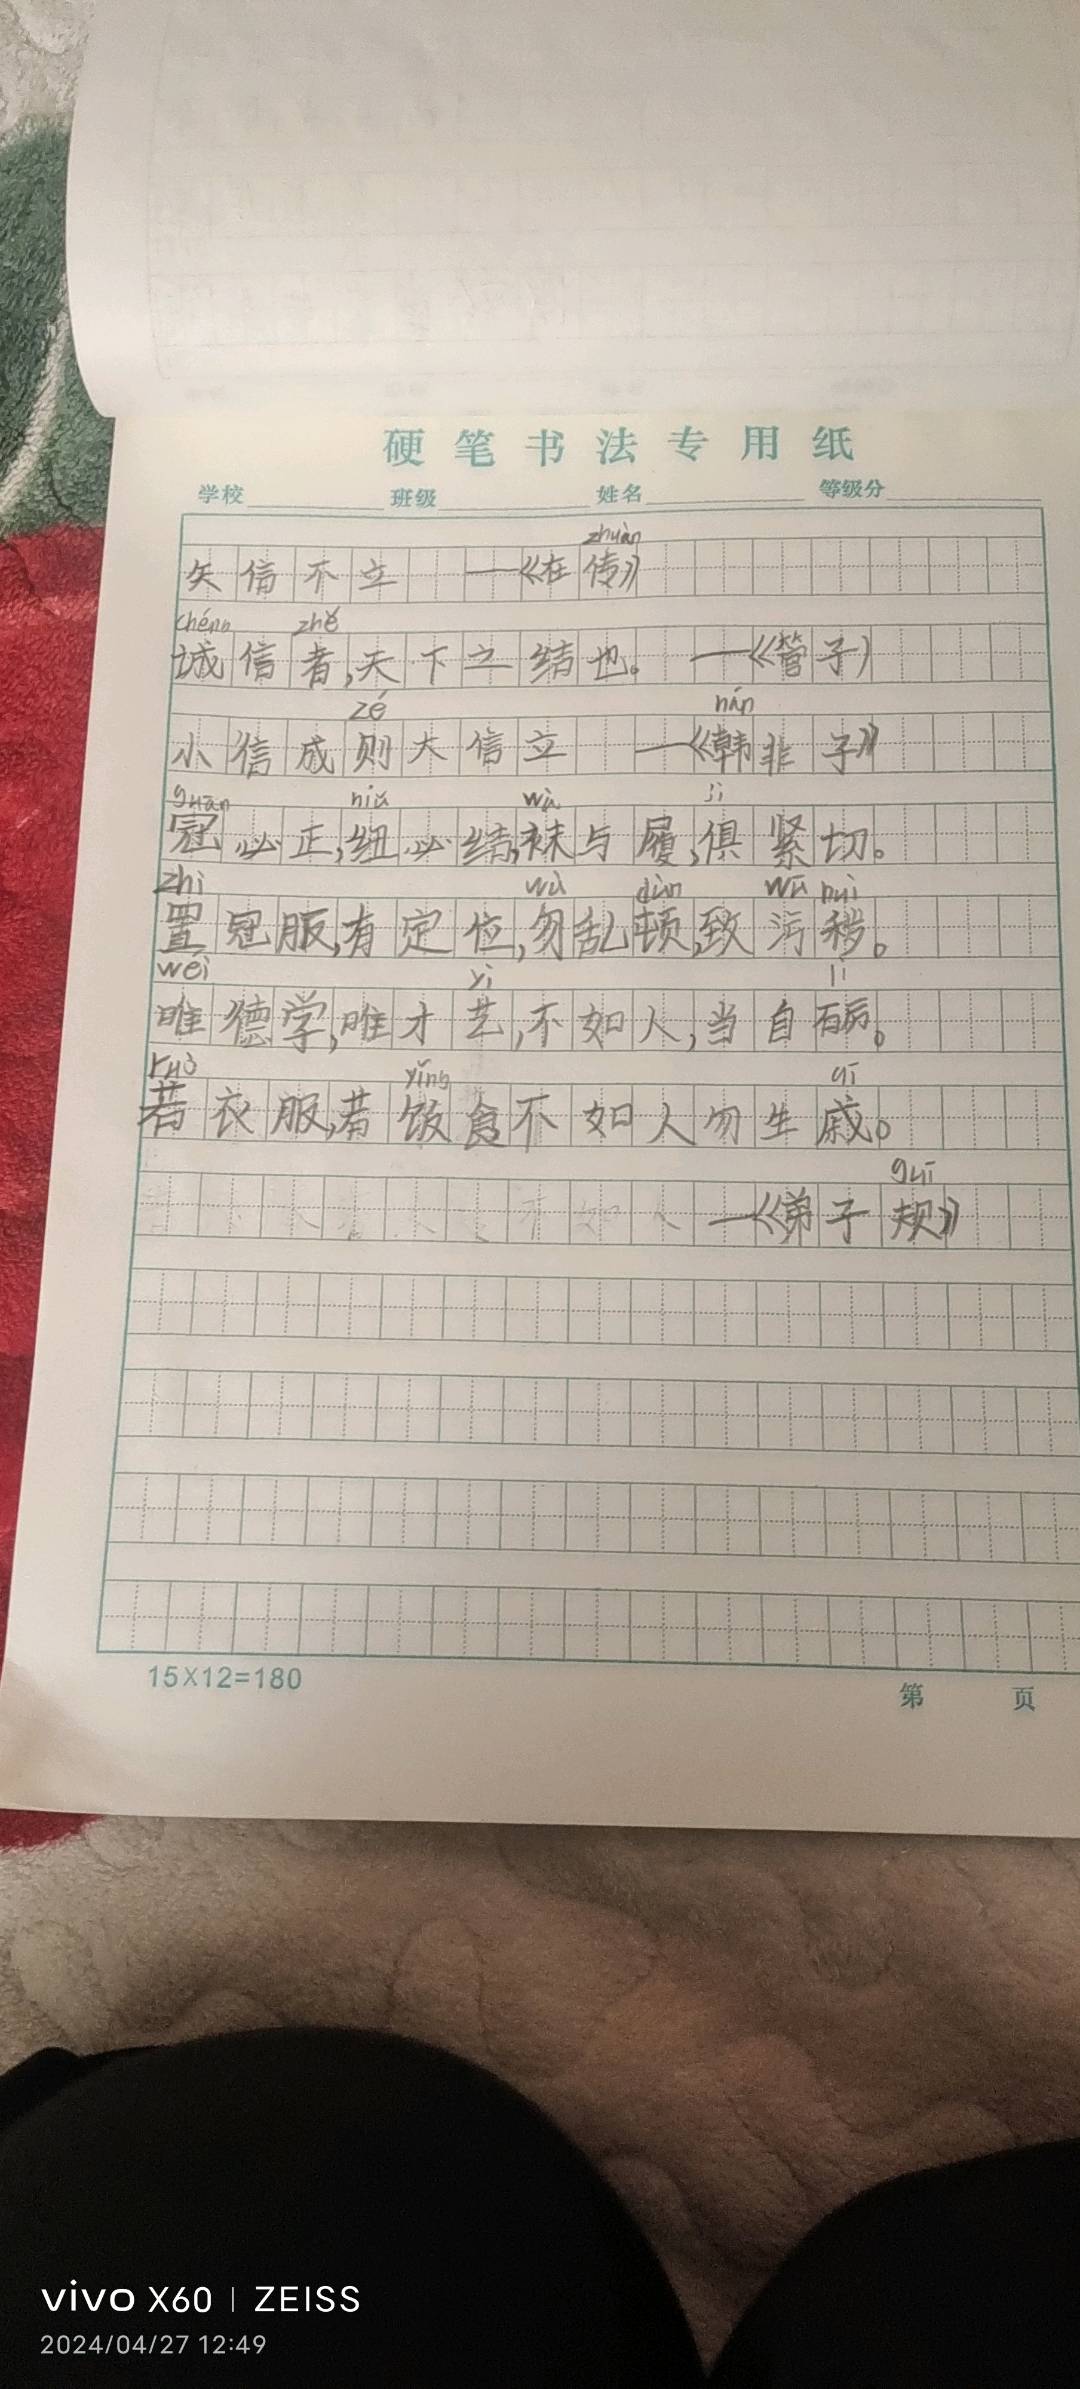 硬笔书法专用纸
学校 班级 姓名 等级分
zhuàn
矢信不立 —《在传》
chéng zhě
诚信者,天下之结也。 —《管子)
zé hán
小信成则大信立 —《韩非子》
guān niǔ wà jì
冠必正,纽必结,袜与履,俱紧切。
zhì wù dùn wū huì
置冠服,有定位,勿乱顿,致污秽。
wéi yì lì
唯德学,唯才艺,不如人,当自砺。
ruò yǐng qī
若衣服,若饭食不如人勿生戚。
guī
—《弟子规》
15X12=180
第 页
vivo X60 | ZEISS
2024/04/27 12:49